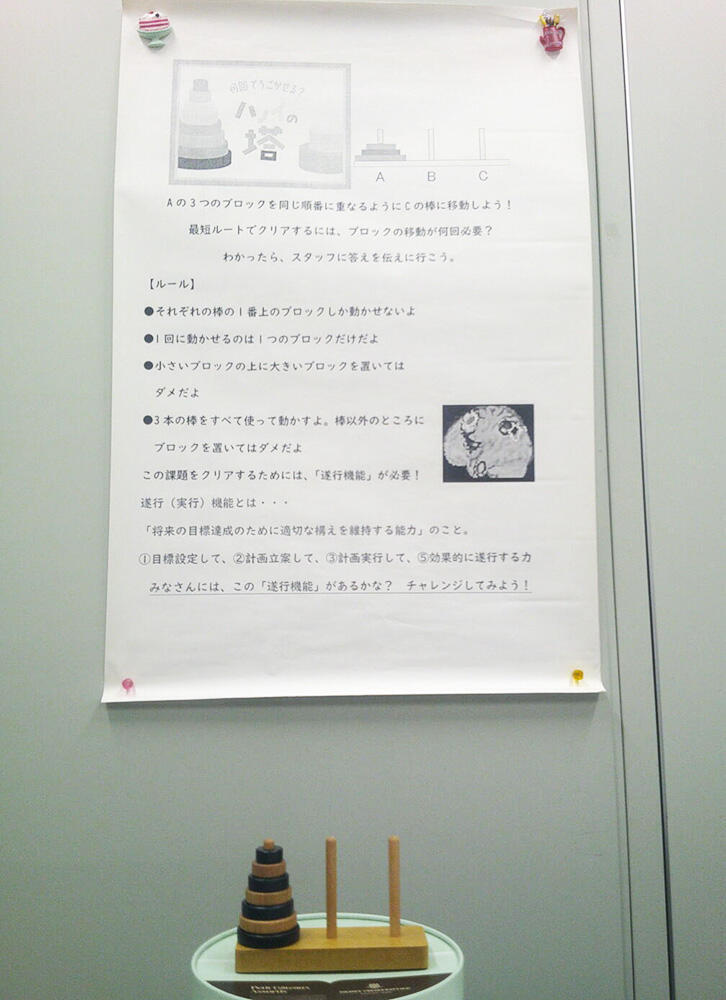 何回でうごかせる?
ハノイの
塔
A B C
Aの3つのブロックを同じ順番に重なるようにCの棒に移動しよう!
最短ルートでクリアするには、ブロックの移動が何回必要?
わかったら、スタッフに答えを伝えに行こう。
【ルール】
●それぞれの棒の1番上のブロックしか動かせないよ
●1回に動かせるのは1つのブロックだけだよ
●小さいブロックの上に大きいブロックを置いては
ダメだよ
●3本の棒をすべて使って動かすよ。棒以外のところに
ブロックを置いてはダメだよ
この課題をクリアするためには、「遂行機能」が必要!
遂行（実行）機能とは・・・
「将来の目標達成のために適切な構えを維持する能力」のこと。
①目標設定して、②計画立案して、③計画実行して、⑤効果的に遂行する力
みなさんには、この「遂行機能」があるかな?　チャレンジしてみよう!